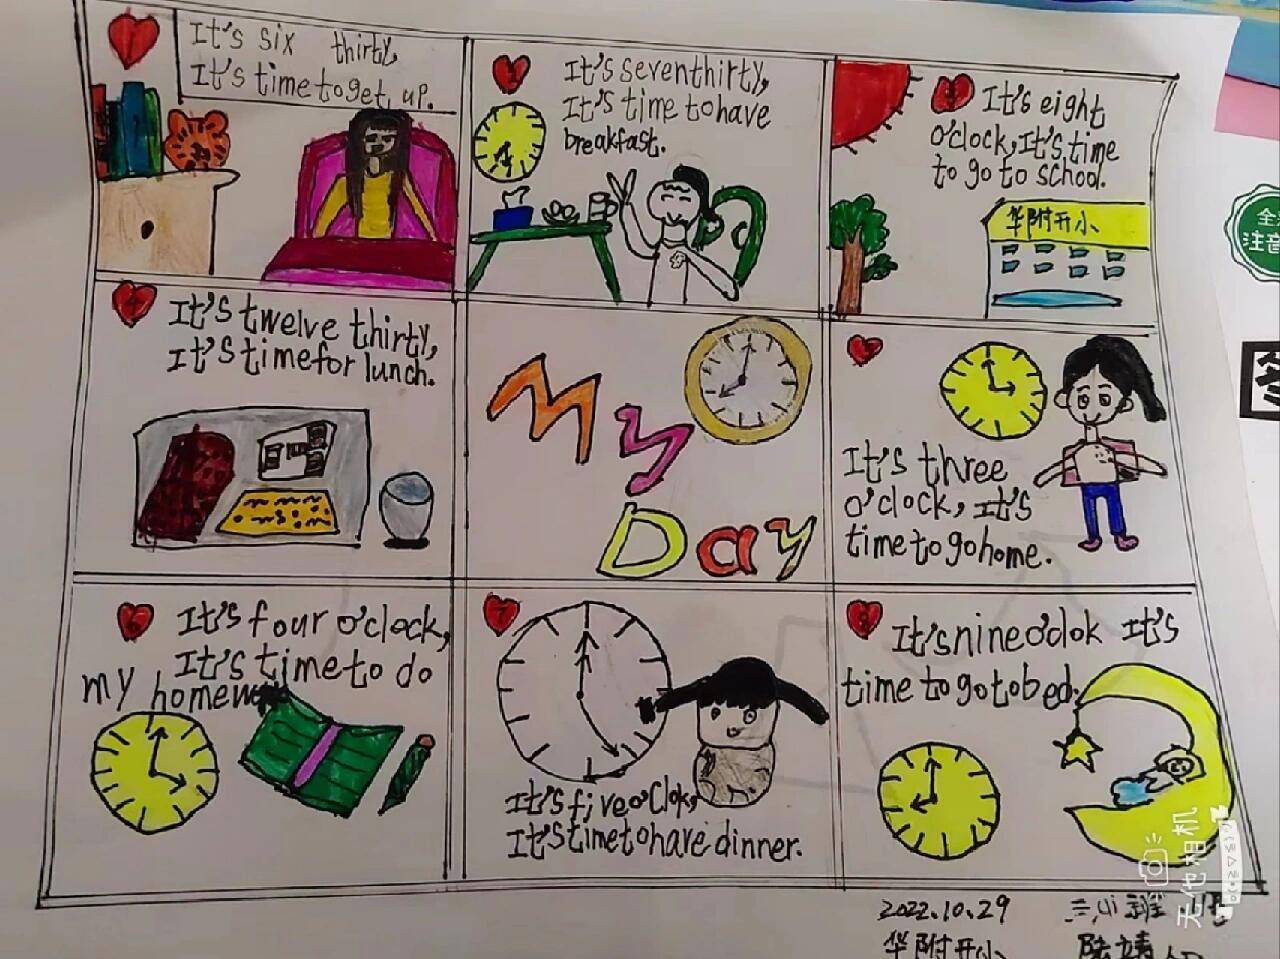 1
It's six thirty,
It's time to get up.
2
It's seven thirty,
It's time to have
breakfast.
3
It's eight
o'clock, It's time
to go to school.
华附开小
4
It's twelve thirty,
It's time for lunch.
My
Day
It's three
o'clock, It's
time to go home.
6
It's four o'clock,
It's time to do
my homew
7
It's five o'Clok,
It's time to have dinner.
8
It's nine o'clok It's
time to go to bed.
2022.10.29
华附开小
无他相机